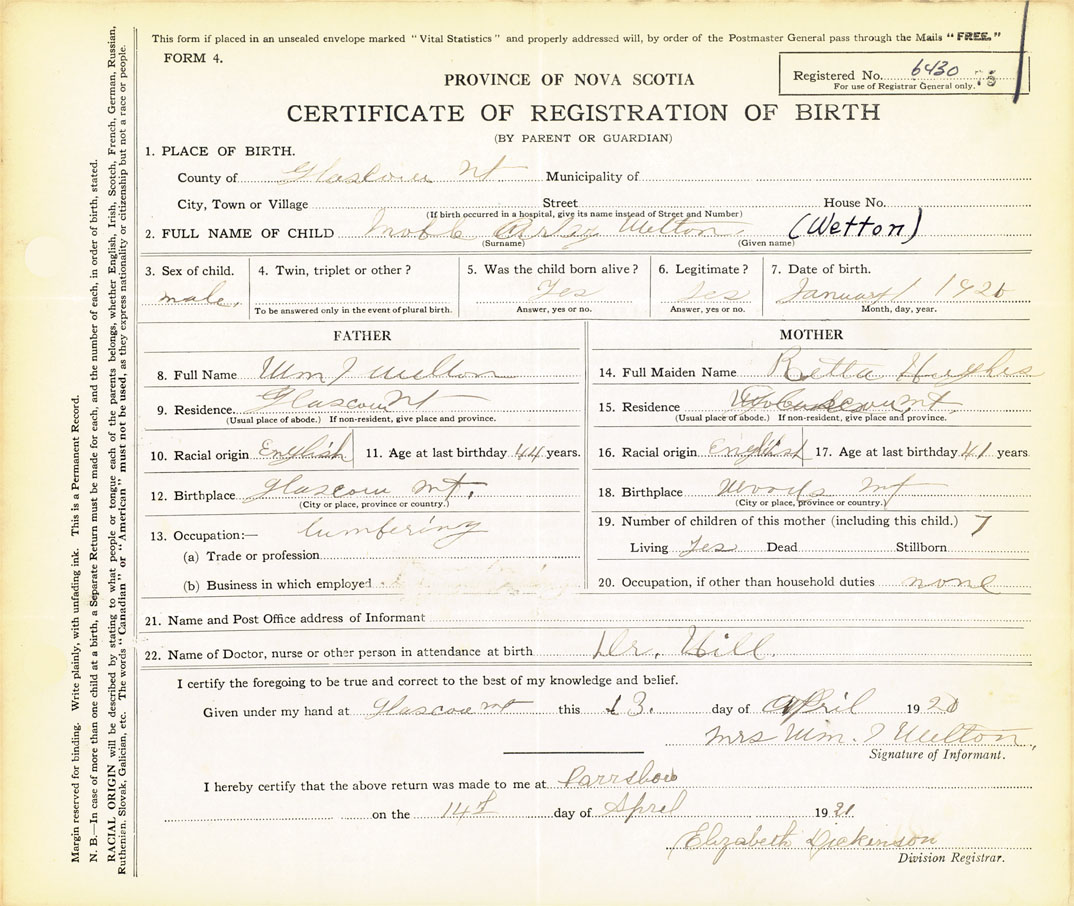 This form if placed in an unsealed envelope marked "Vital Statistics" and properly addressed will, by order of the Postmaster General pass through the Mails "FREE."
FORM 4.
Registered No. 6430
For use of Registrar General only.
PROVINCE OF NOVA SCOTIA
CERTIFICATE OF REGISTRATION OF BIRTH
(BY PARENT OR GUARDIAN)
1. PLACE OF BIRTH.
County of Glascow Mt Municipality of
City, Town or Village Street House No.
(If birth occurred in a hospital, give its name instead of Street and Number)
2. FULL NAME OF CHILD Welton (Wetton)
(Surname) (Given name)
3. Sex of child. 4. Twin, triplet or other? 5. Was the child born alive? 6. Legitimate? 7. Date of birth.
male. Yes Yes January 1 1920
To be answered only in the event of plural birth. Answer, yes or no. Answer, yes or no. Month, day, year.
FATHER
8. Full Name Wm J Welton
9. Residence. Glascow Mt
(Usual place of abode.) If non-resident, give place and province.
10. Racial origin English 11. Age at last birthday 44 years.
12. Birthplace Glascow Mt.
(City or place, province or country.)
13. Occupation:— lumbering
(a) Trade or profession
(b) Business in which employed
MOTHER
14. Full Maiden Name Retta Hughes
15. Residence Mt.
(Usual place of abode.) If non-resident, give place and province.
16. Racial origin English 17. Age at last birthday 41 years
18. Birthplace Woods Mt
(City or place, province or country.)
19. Number of children of this mother (including this child.) 7
Living Yes Dead Stillborn
20. Occupation, if other than household duties none
21. Name and Post Office address of Informant
22. Name of Doctor, nurse or other person in attendance at birth Dr. Hill.
I certify the foregoing to be true and correct to the best of my knowledge and belief.
Given under my hand at Glascow Mt this 13. day of April 1920
Mrs Wm. J Welton
Signature of Informant.
I hereby certify that the above return was made to me at Parrsboro
on the 14th day of April 1921
Elizabeth Dickenson
Division Registrar.
Margin reserved for binding. Write plainly, with unfading ink. This is a Permanent Record.
N. B.—In case of more than one child at a birth, a Separate Return must be made for each, and the number of each, in order of birth, stated.
RACIAL ORIGIN will be described by stating to what people or tongue each of the parents belongs, whether English, Irish, Scotch, French, German, Russian,
Ruthenian, Slovak, Galician, etc. The words "Canadian" or "American" must not be used, as they express nationality or citizenship but not a race or people.